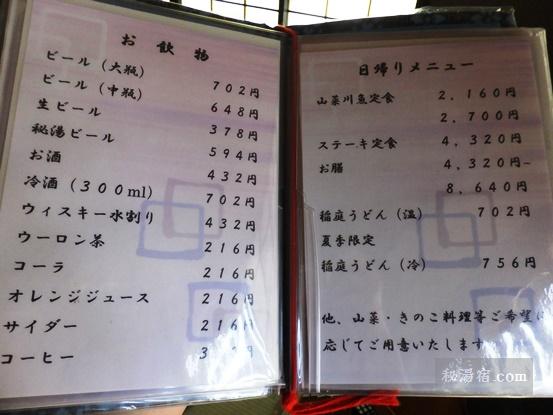 お飲物
ビール（大瓶） 702円
ビール（中瓶） 648円
生ビール 378円
秘湯ビール 594円
お酒 432円
冷酒（300ml） 702円
ウィスキー水割り 432円
ウーロン茶 216円
コーラ 216円
オレンジジュース 216円
サイダー 216円
コーヒー
日帰りメニュー
山菜川魚定食 2,160円
2,700円
ステーキ定食 4,320円
お膳 4,320円~
8,640円
稲庭うどん（温） 702円
夏季限定
稲庭うどん（冷） 756円
他、山菜・きのこ料理等ご希望に
応じてご用意いたします。
秘湯宿.com